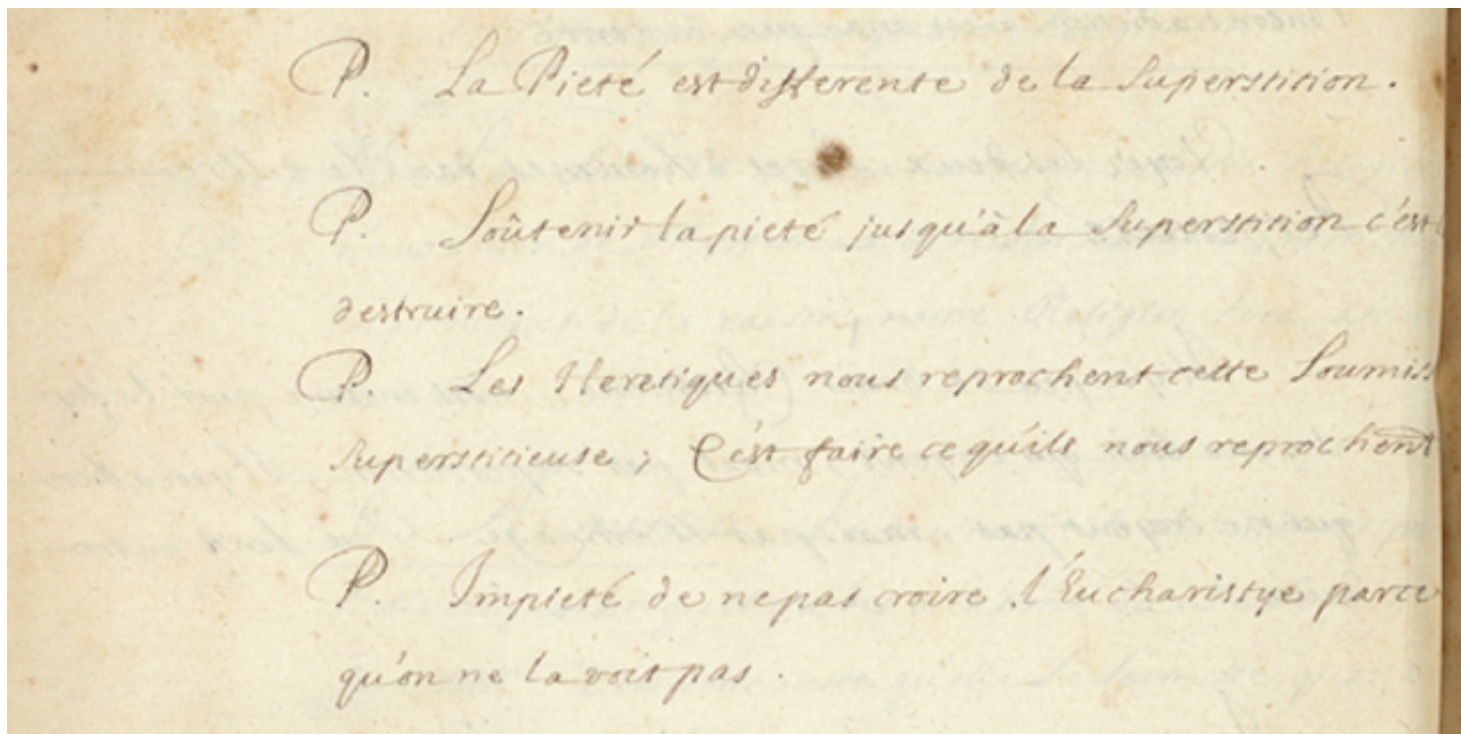 P. La Pieté est differente de la Superstition.
P. Soûtenir la pieté jusqu'à la Superstition c'est
destruire.
P. Les Heretiques nous reprochent cette Soumis
Superstitieuse; C'est faire ce qu'ils nous reprochent
P. Impieté de ne pas croire l'Eucharistye parce
qu'on ne la voit pas.